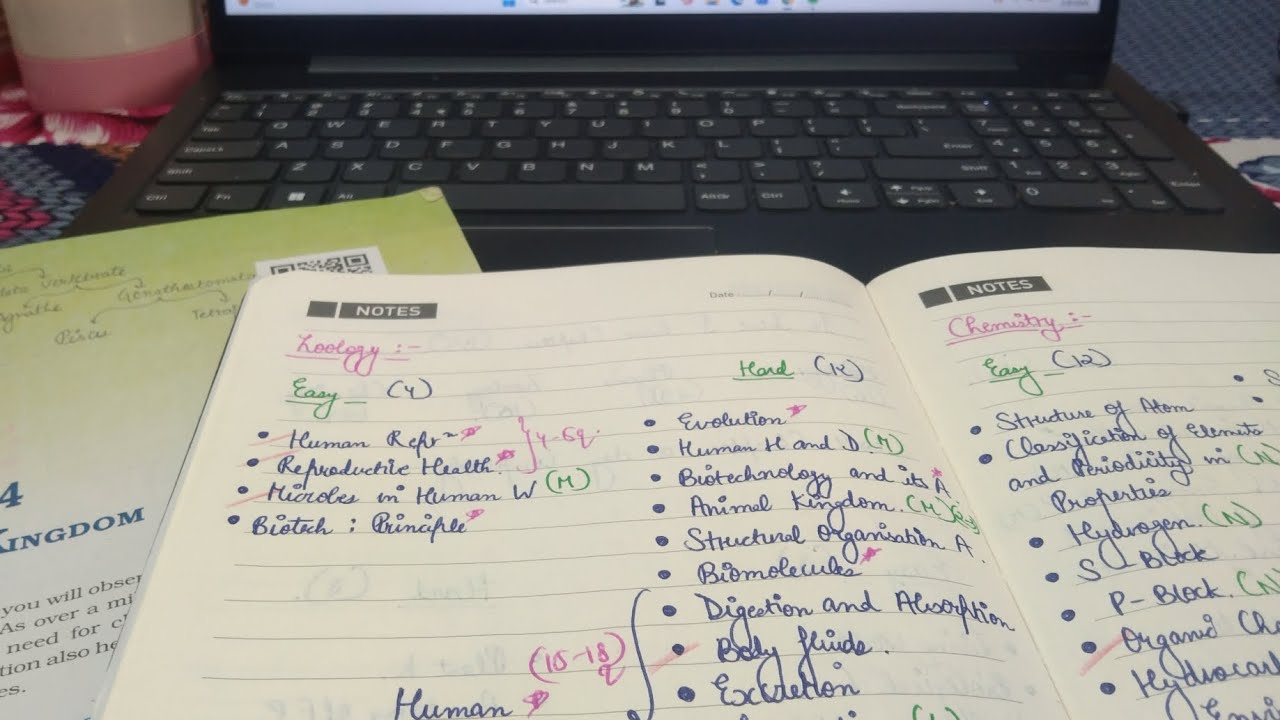 vertebrate
Gnathostomata
Agnatha
Pisces
4
KINGDOM
you will obser
As over a mi
need for cl
tion also he
es.
NOTES
Date
Zoology :-
Easy (4)
• Human Reprⁿ
• Reproductive Health
4-6q.
• Microbes in Human W (M)
• Biotech : Principle
Hard (12)
• Evolution
• Human H and D (M)
• Biotechnology and its A
• Animal Kingdom. (M)
• Structural Organisation A.
• Biomolecules
• Digestion and Absorption
• Body fluids.
• Excretion
(15-18)
q
Human
NOTES
Chemistry :-
Easy (12)
• Structure of Atom
• Classification of Elements
and Periodicity in (N)
Properties
• Hydrogen. (N)
• S-Block
• P-Block. (N)
• Organic Che
• Hydrocar